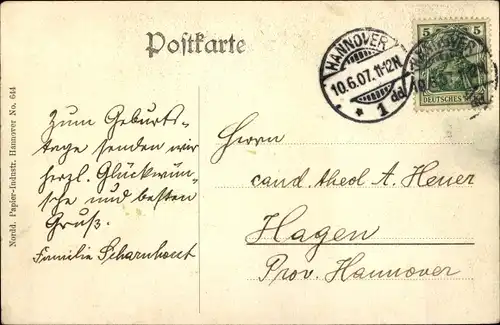 Postkarte
HANNOVER
10.6.07.11-12N
* 1 dd
5 5
DEUTSCHES
Nordd. Papier-Industr. Hannover No. 644
Zum Geburts-
tage senden wir
herzl. Glückwün-
sche und besten
Gruß.
Familie Scharnhorst
Herrn
cand. theol A. Heuer
Hagen
Prov. Hannover